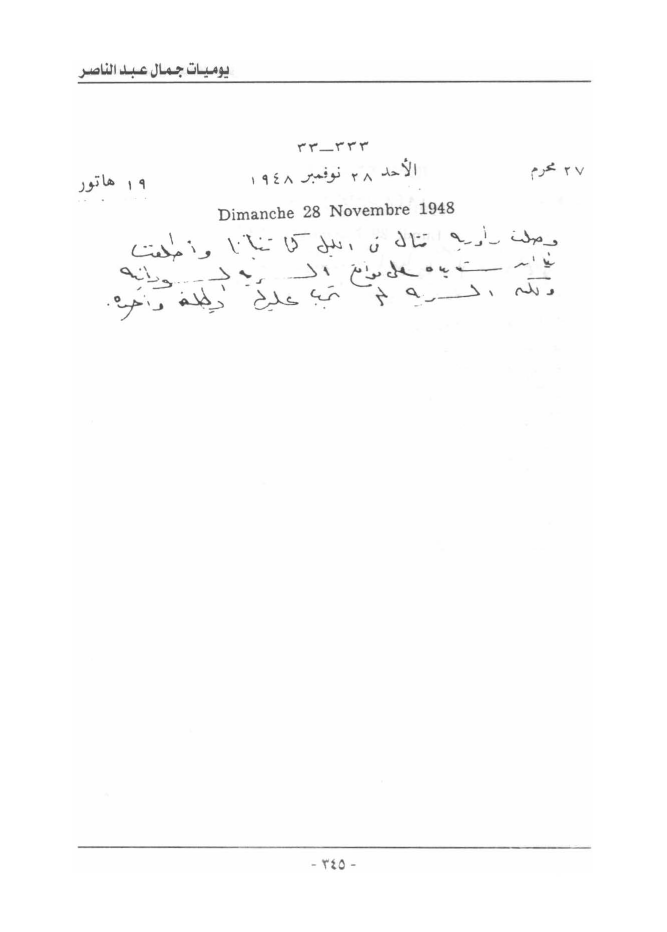 يوميات جمال عبد الناصر
٣٣٣—٣٣
٢٧ محرم الأحد ٢٨ نوفمبر ١٩٤٨ ١٩ هاتور
Dimanche 28 Novembre 1948
وصلت دورية قتال فى الليل كما تنبأنا وأطلقت
نيران شديدة على مواقع السرية السودانية
ولكن السرية لم تجب عليها بطلقة واحدة.
- ٣٤٥ -